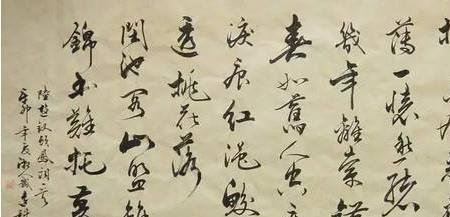 薄一懷愁緒
幾年離索錯
春如舊人空
淚痕紅浥鮫
透桃花落
閑池閣山盟
錦書難托莫
陸放翁釵頭鳳詞
辛卯年夏